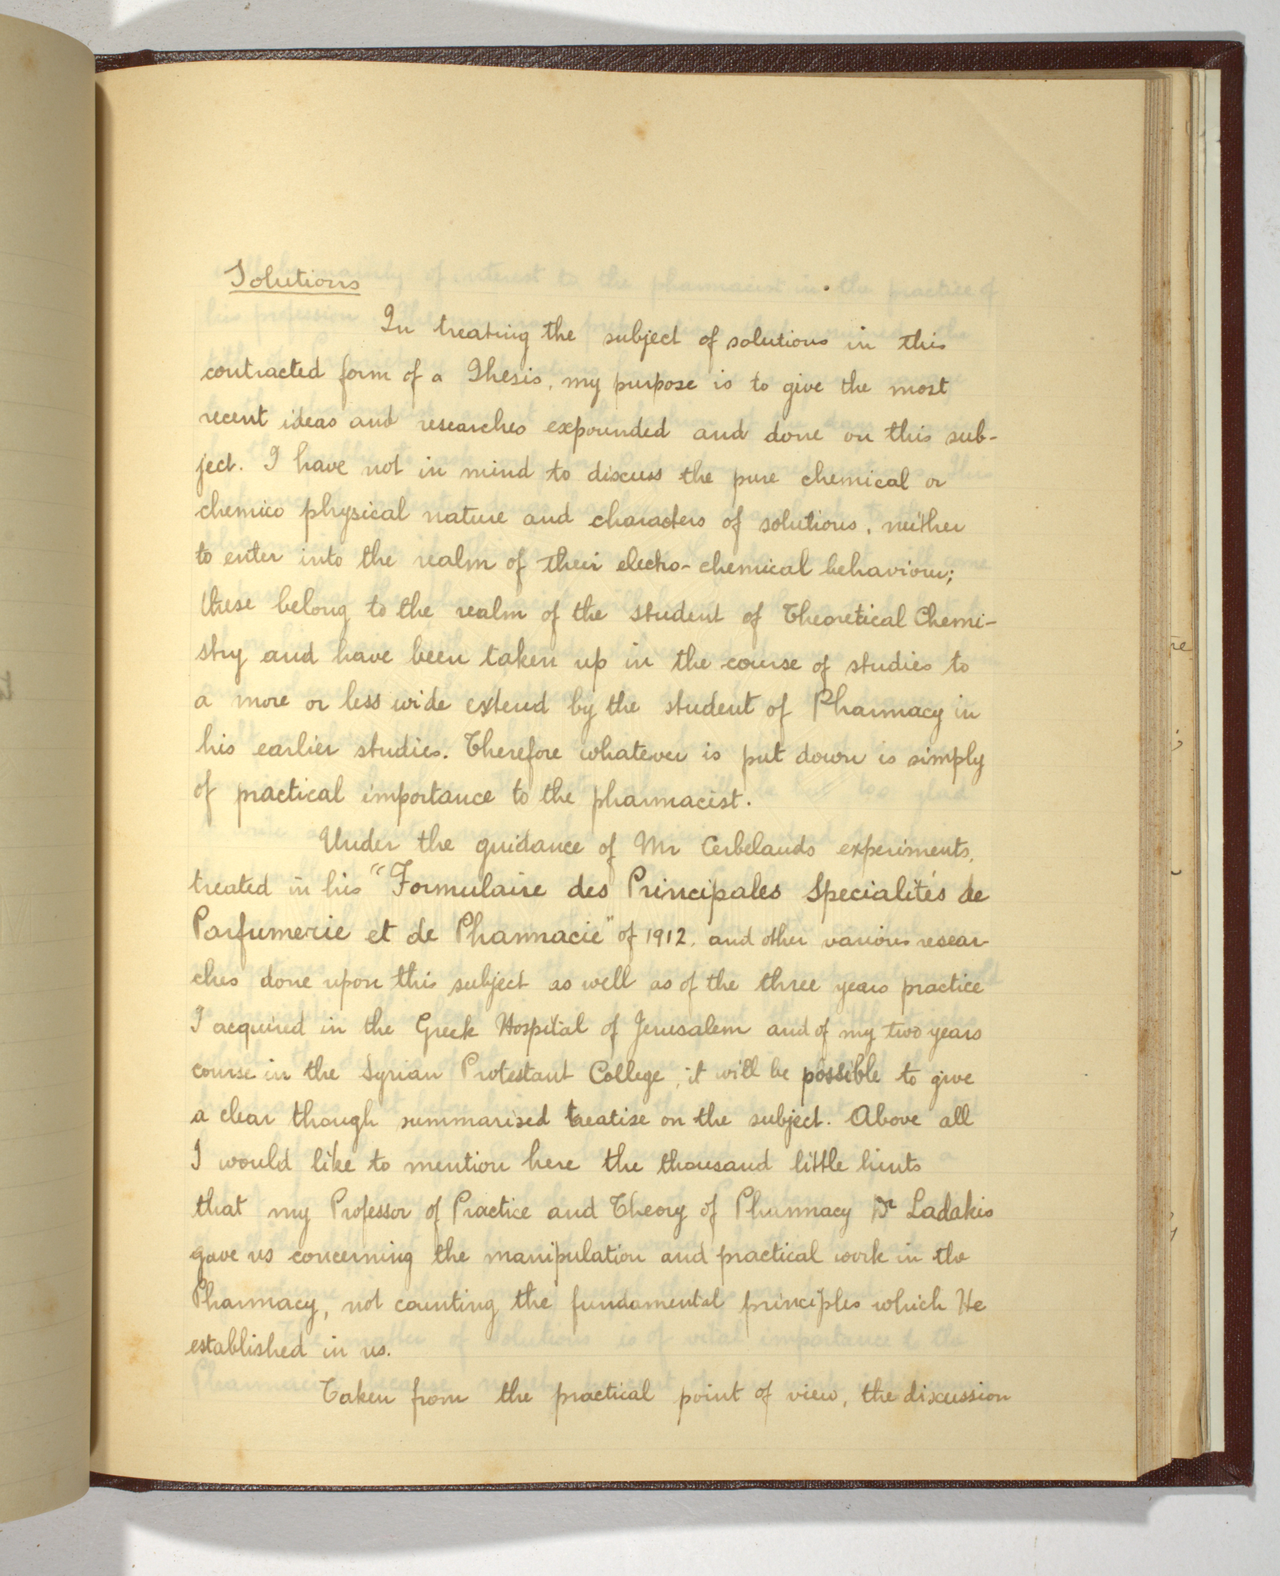 Solutions
In treating the subject of solutions in this
contracted form of a Thesis, my purpose is to give the most
recent ideas and researches expounded and done on this sub-
ject. I have not in mind to discuss the pure chemical or
chemico physical nature and characters of solutions, neither
to enter into the realm of their electro-chemical behaviour;
these belong to the realm of the student of Theoretical Chemi-
stry and have been taken up in the course of studies to
a more or less wide extend by the student of Pharmacy in
his earlier studies. Therefore whatever is put down is simply
of practical importance to the pharmacist.
Under the guidance of Mr Cerbelauds experiments,
treated in his "Formulaire des Principales Specialités de
Parfumerie et de Pharmacie" of 1912, and other various resear-
ches done upon this subject as well as of the three years practice
I acquired in the Greek Hospital of Jerusalem and of my two years
course in the Syrian Protestant College, it will be possible to give
a clear though summarised treatise on the subject. Above all
I would like to mention here the thousand little hints
that my Professor of Practice and Theory of Pharmacy Dr Ladakis
gave us concerning the manipulation and practical work in the
Pharmacy, not counting the fundamental principles which He
established in us.
Taken from the practical point of view, the discussion